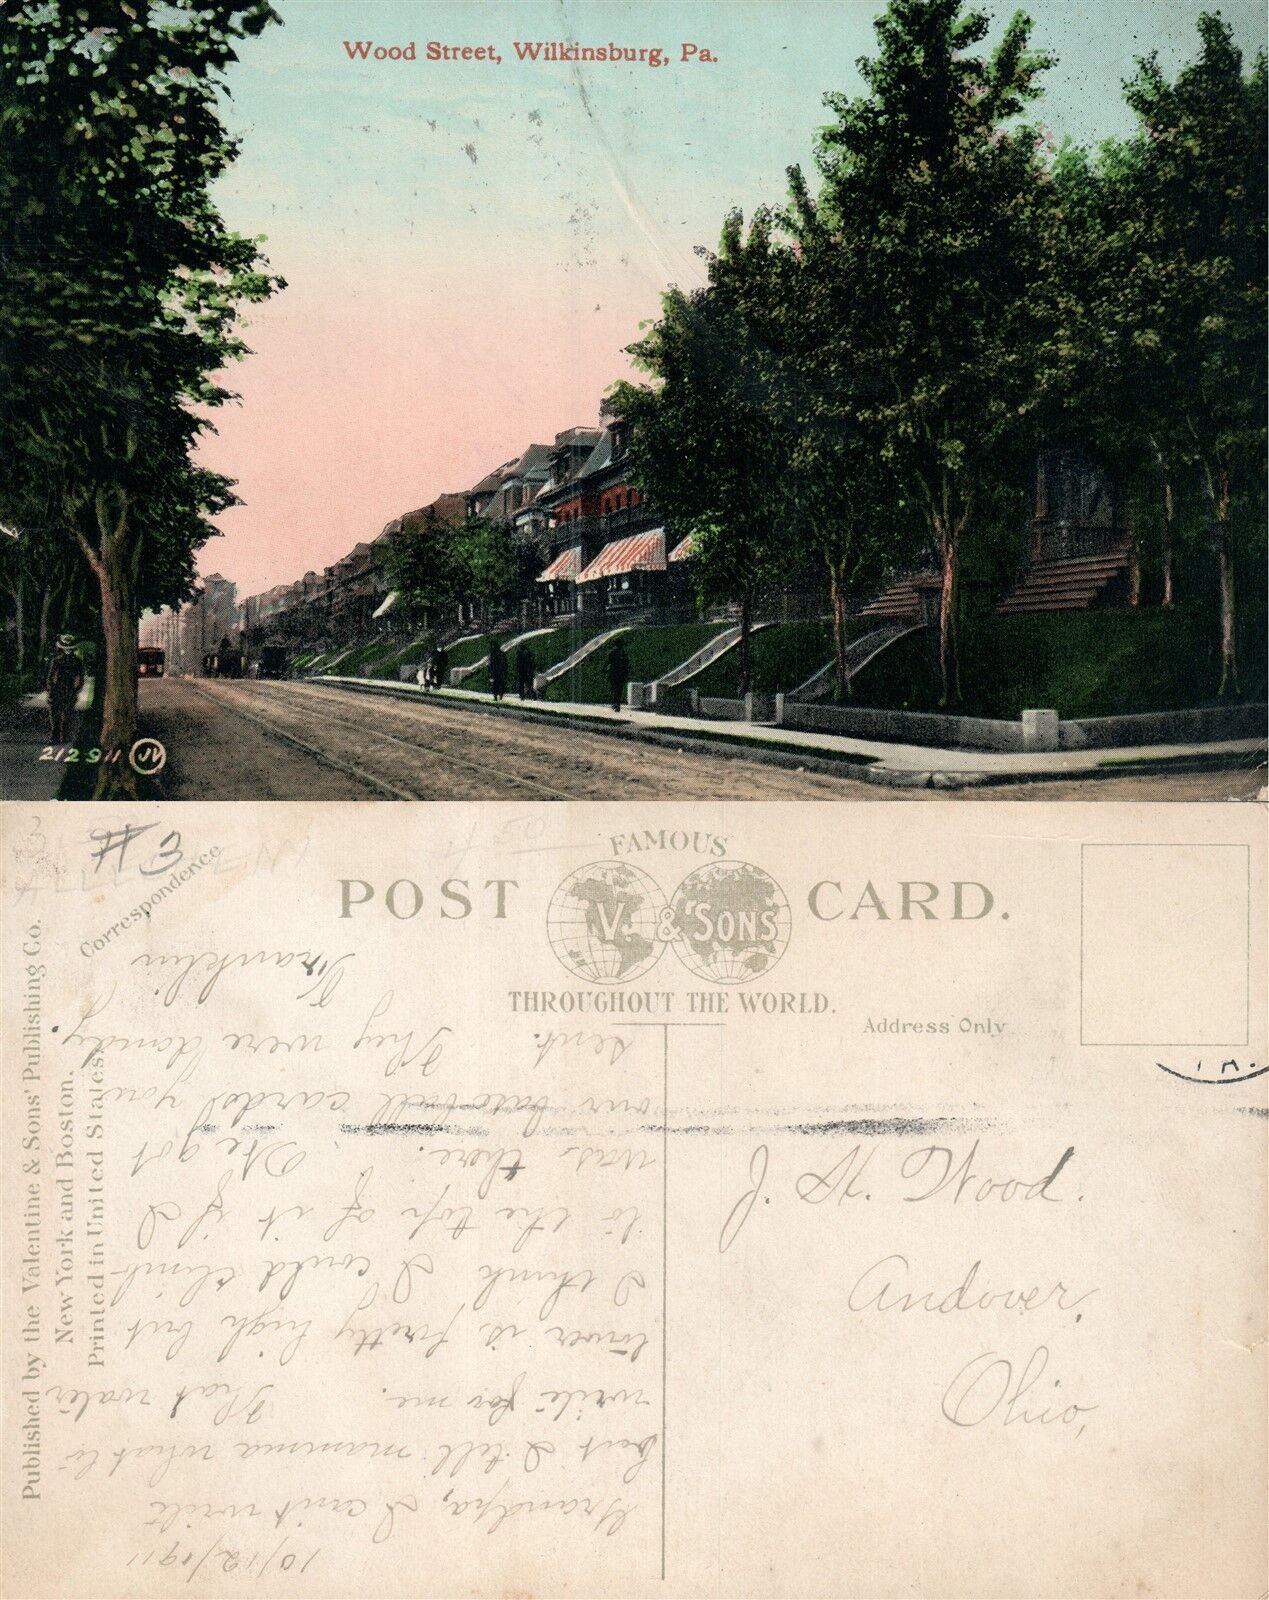 Wood Street, Wilkinsburg, Pa.
212911 JV
#3
Correspondence
POST CARD.
FAMOUS
V. & SONS
THROUGHOUT THE WORLD.
Address Only
Published by the Valentine & Sons' Publishing Co.
New York and Boston.
Printed in United States.
10/12/1911
Grandpa, I can't write
but I tell mamma what to
write for me. That water
tower is pretty high but
I think I could climb
to the top of it if I
was there. We got
our baseball cards you
sent. They were dandy.
Franklin
J. H. Wood.
Andover,
Ohio,